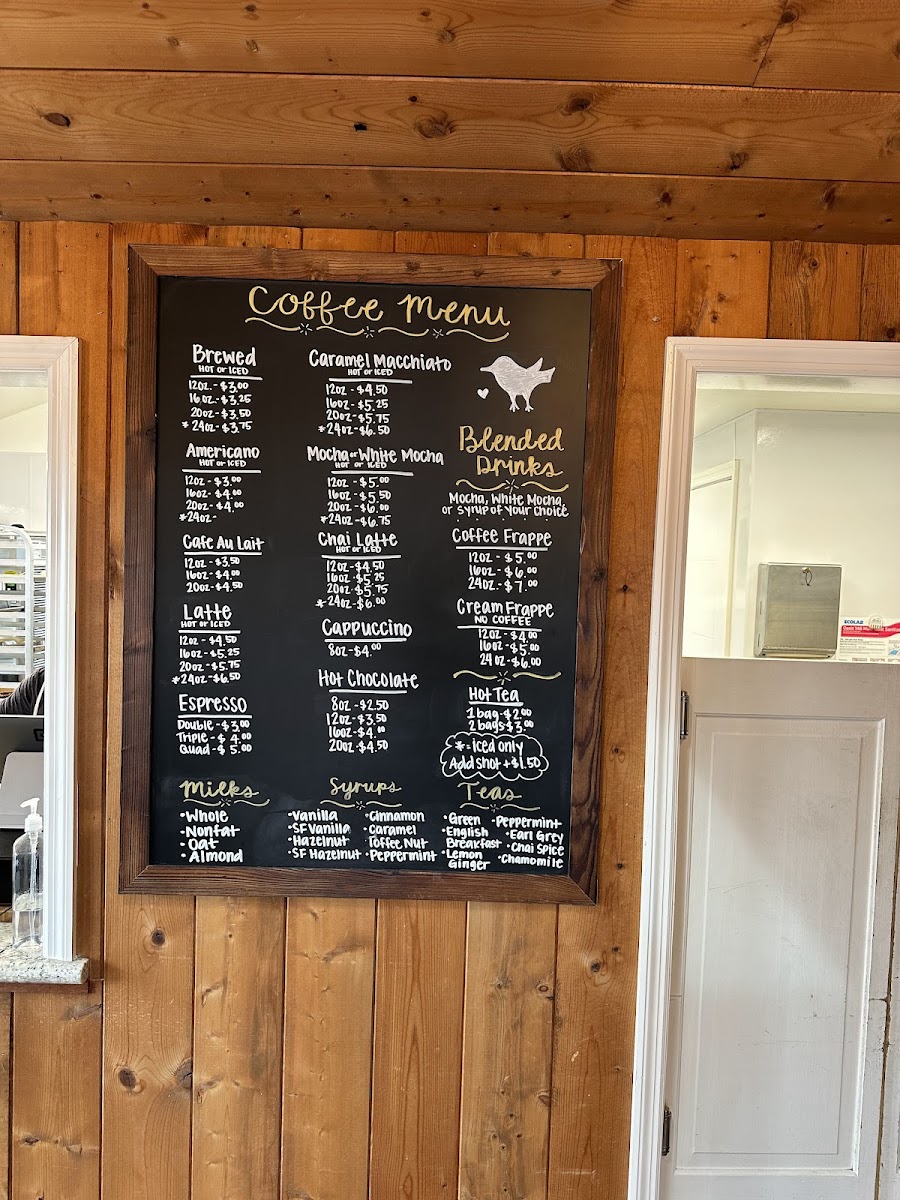 Coffee Menu
Brewed
HOT or ICED
12oz. - $3.00
16oz. - $3.25
20oz - $3.50
* 24oz - $3.75
Americano
HOT or ICED
12oz - $3.00
16oz - $4.00
20oz - $4.00
*24oz -
Cafe Au Lait
12oz - $3.50
16oz - $4.00
20oz - $4.50
Latte
HOT or ICED
12oz - $4.50
16oz - $5.25
20oz - $5.75
*24oz - $6.50
Espresso
Double - $3.00
Triple - $4.00
Quad - $5.00
Caramel Macchiato
HOT or ICED
12oz - $4.50
16oz - $5.25
20oz - $5.75
*24oz - $6.50
Mocha or White Mocha
HOT or ICED
12oz - $5.00
16oz - $5.50
20oz - $6.00
*24oz - $6.75
Chai Latte
HOT or ICED
12oz - $4.50
16oz - $5.25
20oz - $5.75
*24oz - $6.00
Cappuccino
8oz - $4.00
Hot Chocolate
8oz - $2.50
12oz - $3.50
16oz - $4.00
20oz - $4.50
Blended
Drinks
Mocha, White Mocha
or syrup of your choice
Coffee Frappe
12oz - $5.00
16oz - $6.00
24oz - $7.00
Cream Frappe
NO COFFEE
12oz - $4.00
16oz - $5.00
24oz - $6.00
Hot Tea
1 bag - $2.00
2 bags $3.00
* = iced only
Add shot + $1.50
Milks
• Whole
• Nonfat
• Oat
• Almond
Syrups
• Vanilla
• SF Vanilla
• Hazelnut
• SF Hazelnut
• Cinnamon
• Caramel
Toffee Nut
• Peppermint
Teas
• Green
• English
Breakfast
• Lemon
Ginger
• Peppermint
• Earl Grey
• Chai Spice
• Chamomile
ECOLAB